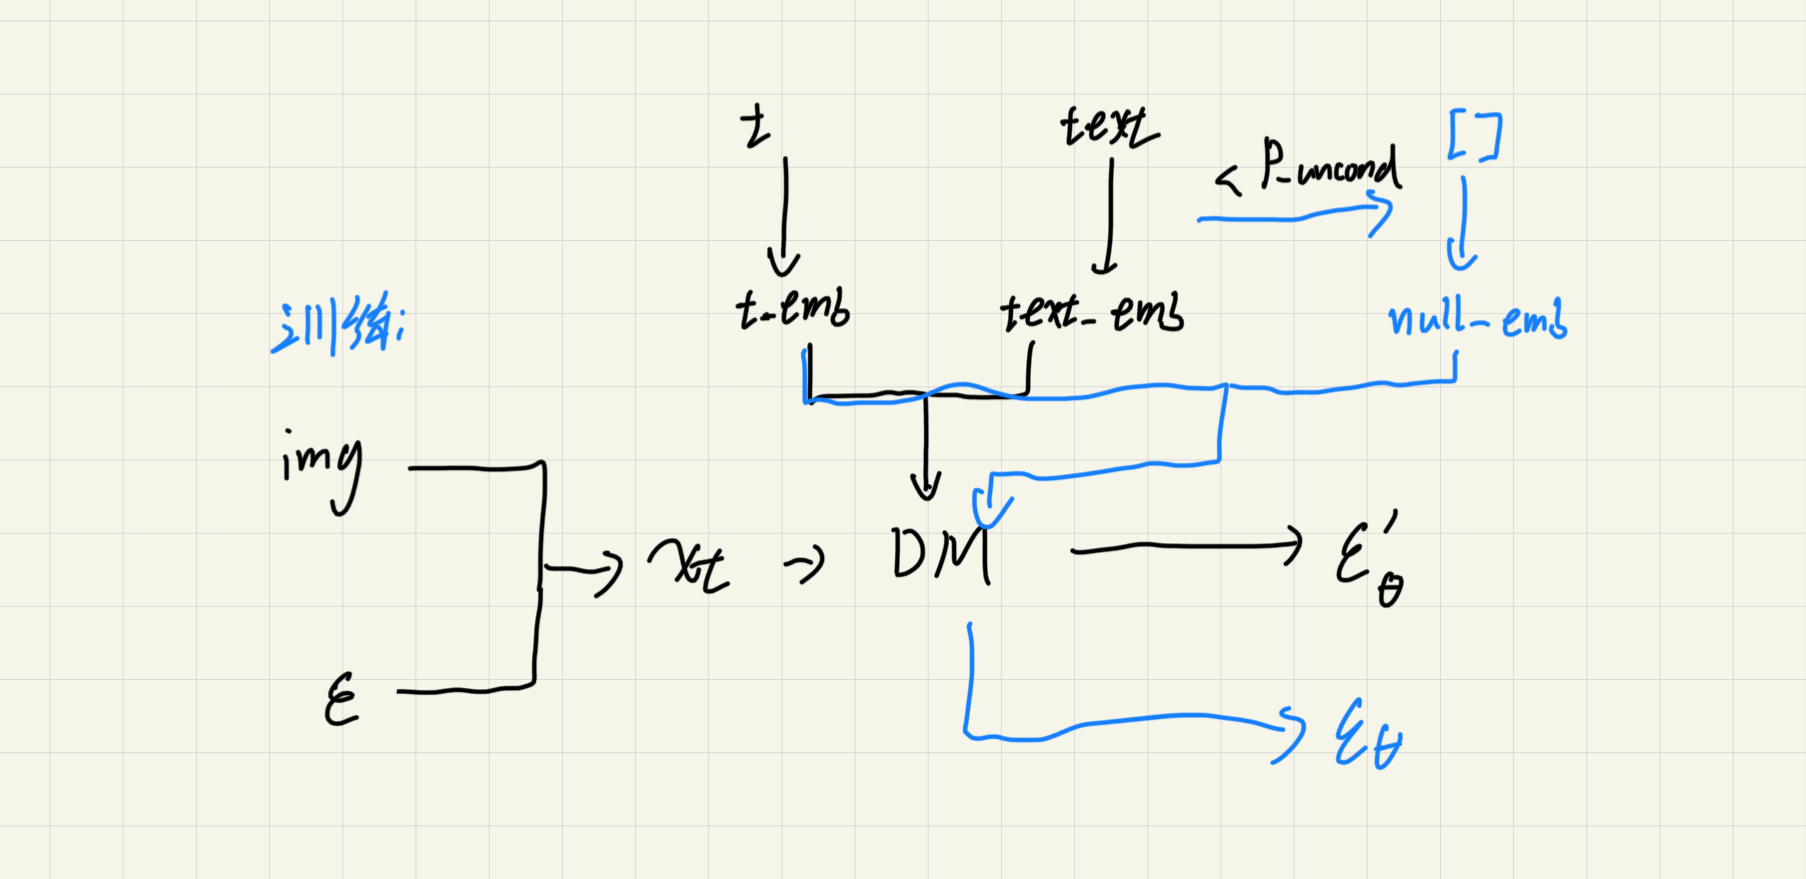 t text []
< P_uncond
t_emb text_emb null_emb
训练:
img
xt DM ε'θ
ε
εθ